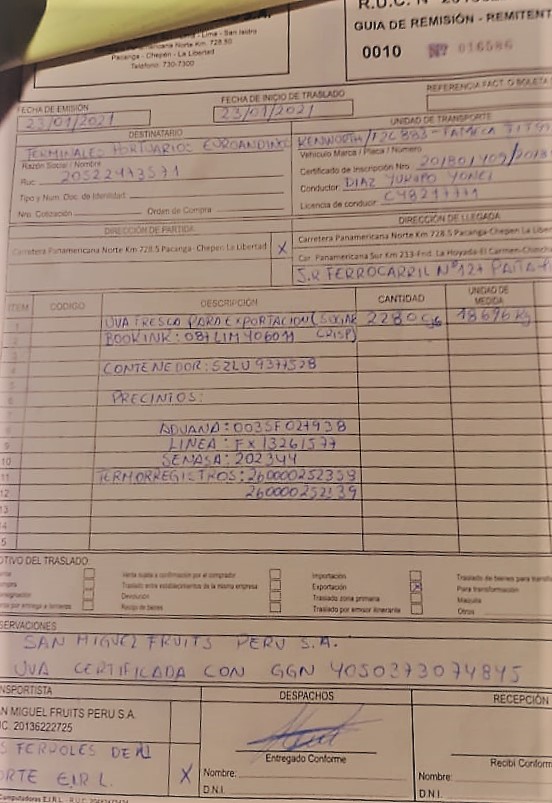 R.U.C. N°
GUIA DE REMISIÓN - REMITENT
0010 N° 016586
- Lima - San Isidro
Panamericana Norte Km. 728.50
Pacanga - Chepén - La Libertad
Teléfono: 730-7300
FECHA DE EMISIÓN
23/01/2021
FECHA DE INICIO DE TRASLADO
23/01/2021
REFERENCIA FACT. O BOLETA
DESTINATARIO
TERMINALES PORTUARIOS EUROANDINO
Razón Social / Nombre
Ruc 20522473571
Tipo y Num. Doc. de Identidad
Nro. Cotización Orden de Compra
UNIDAD DE TRANSPORTE
KENWORTH/
Vehículo Marca / Placa / Número
Certificado de Inscripción Nro.
Conductor: DIAZ
Licencia de conductor:
DIRECCIÓN DE PARTIDA
Carretera Panamericana Norte Km 728.5 Pacanga- Chepen La Libertad X
DIRECCIÓN DE LLEGADA
Carretera Panamericana Norte Km 728.5 Pacanga-Chepen La Liber
Car. Panamericana Sur Km 233-Fnd. La Hoyada-El Carmen-Chinch
J.R FERROCARRIL N°127 PAITA
ITEM CÓDIGO DESCRIPCIÓN CANTIDAD UNIDAD DE MEDIDA
1 UVA FRESCA PARA EXPORTACION (SUGAR 2280 18696 kg
2 BOOKINK: 087LIM406011 CRISP)
4 CONTENEDOR: SZLU 9377528
6 PRECINTOS:
8 ADUANA: 0035F027938
9 LINEA: FX13261577
10 SENASA: 202344
11 TERMORREGISTROS: 260000252358
12 260000252339
13
14
5
OTIVO DEL TRASLADO:
Venta sujeta a confirmación por el comprador
Traslado entre establecimientos de la misma empresa
Devolución
Recojo de bienes
Importación
Exportación X
Traslado zona primaria
Traslado por emisor itinerante
Traslado de bienes para transfo
Para transformación
Maquila
Otros
SERVACIONES
SAN MIGUEL FRUITS PERU S.A.
UVA CERTIFICADA CON GGN 4050373074845
NSPORTISTA
N MIGUEL FRUITS PERU S.A.
C. 20136222725
S FERROLES DEL
ORTE E.I.R.L. X
DESPACHOS
Entregado Conforme
Nombre:
D.N.I.
RECEPCIÓN
Recibí Conform
Nombre:
D.N.I.